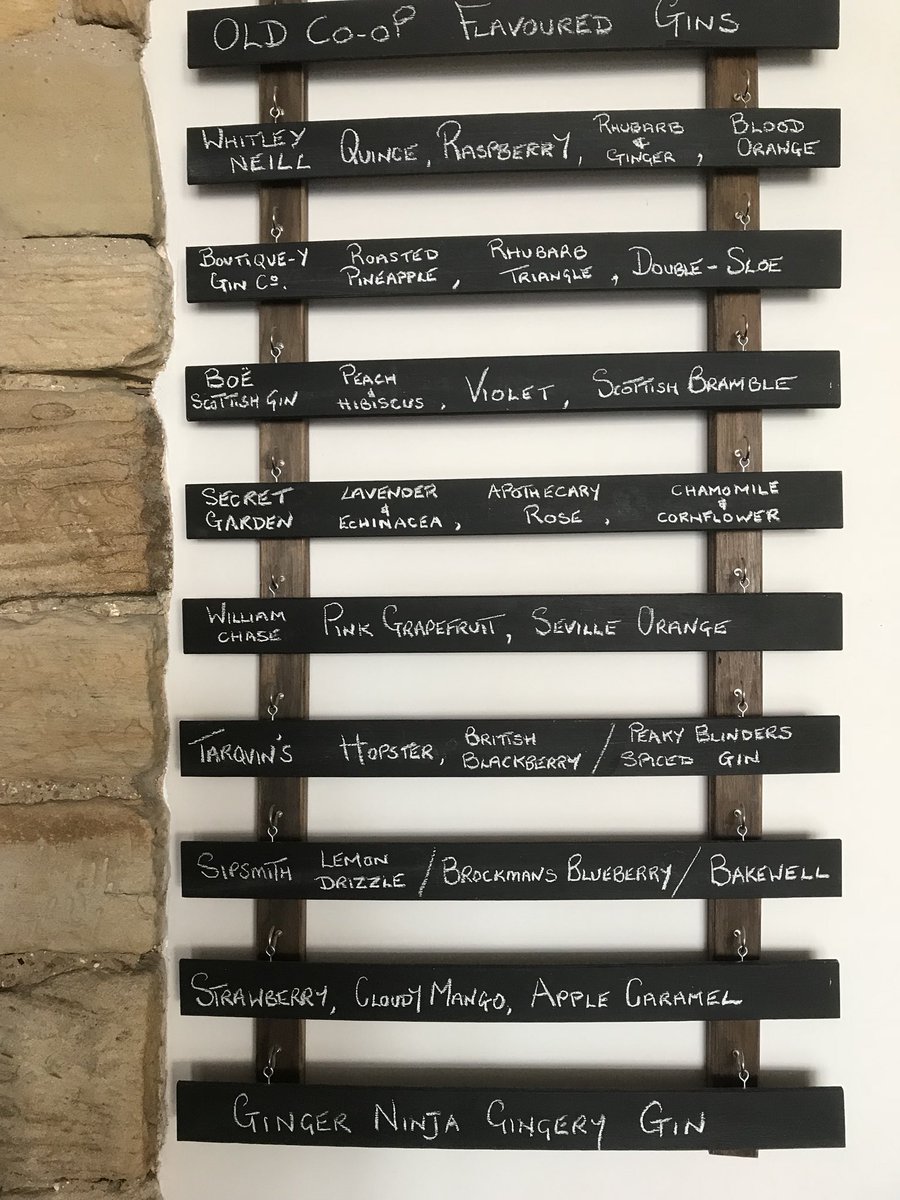 OLD CO-OP FLAVOURED GINS
WHITLEY NEILL QUINCE, RASPBERRY, RHUBARB & GINGER, BLOOD ORANGE
BOUTIQUE-Y GIN Co. ROASTED PINEAPPLE, RHUBARB TRIANGLE, DOUBLE-SLOE
BOË SCOTTISH GIN PEACH & HIBISCUS, VIOLET, SCOTTISH BRAMBLE
SECRET GARDEN LAVENDER & ECHINACEA, APOTHECARY ROSE, CHAMOMILE & CORNFLOWER
WILLIAM CHASE PINK GRAPEFRUIT, SEVILLE ORANGE
TARQUIN'S HOPSTER, BRITISH BLACKBERRY / PEAKY BLINDERS SPICED GIN
SIPSMITH LEMON DRIZZLE / BROCKMANS BLUEBERRY / BAKEWELL
STRAWBERRY, CLOUDY MANGO, APPLE CARAMEL
GINGER NINJA GINGERY GIN